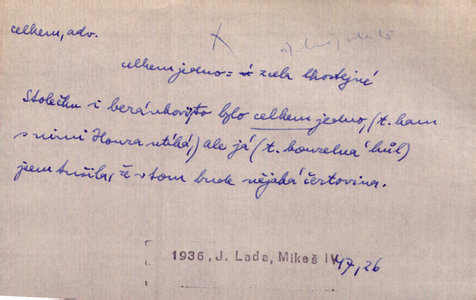 celkem, adv.
celkem jedno = zcela lhostejné
Stolečku i beránkovi to bylo celkem jedno, (t. kam
s nimi Honza utíká,) ale já (t. kouzelná hůl)
jsem tušila, že v tom bude nějaká čertovina.
1936, J. Lada, Mikeš IV
47, 26